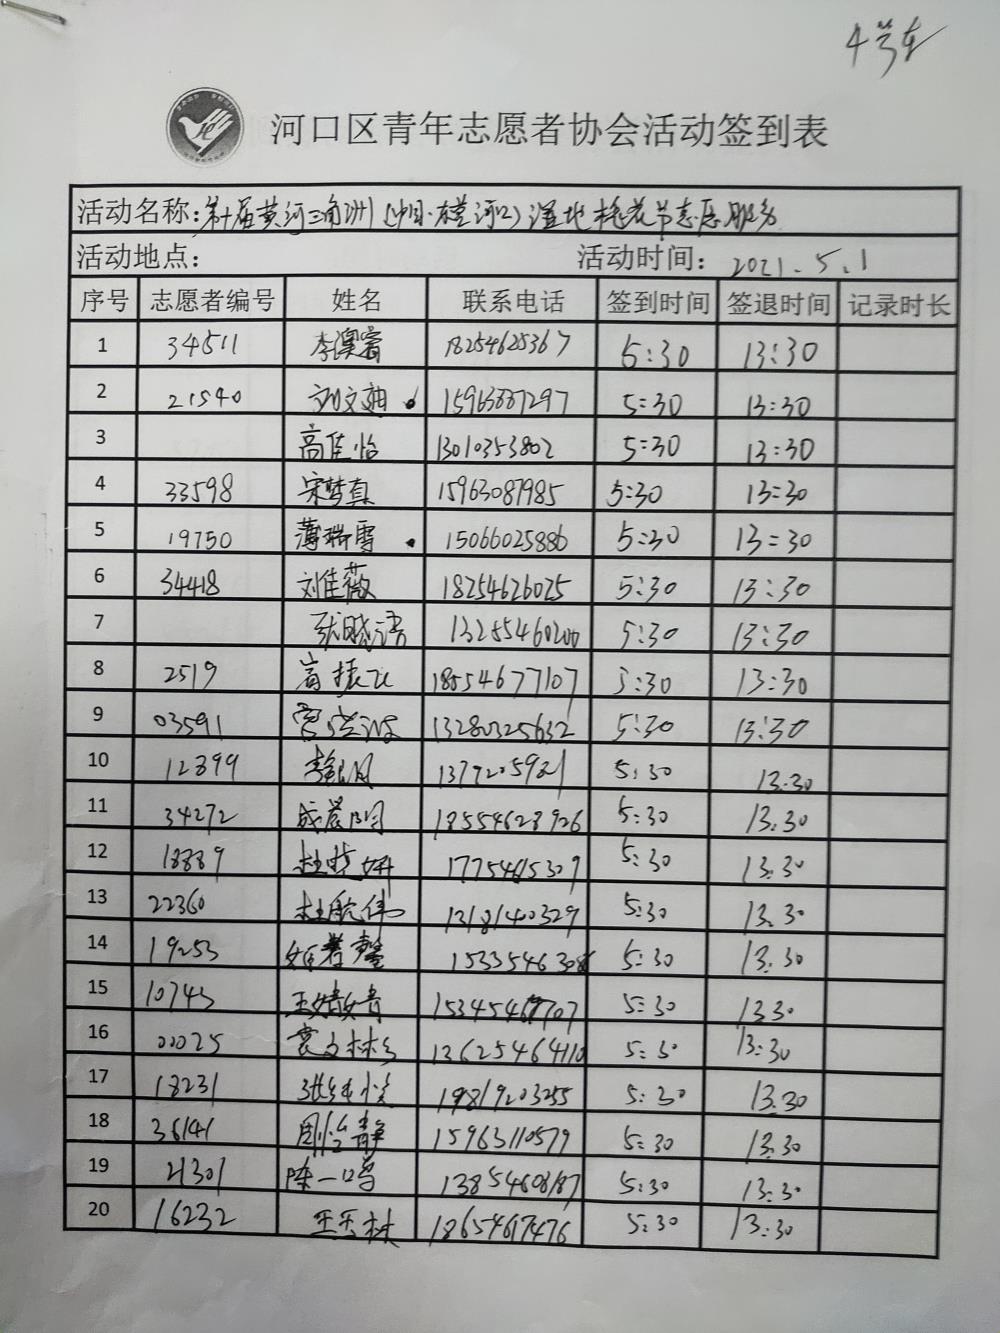 4号车
河口区青年志愿者协会活动签到表
活动名称:第十届黄河三角洲(中国·东营河口)湿地槐花节志愿服务
活动地点: 活动时间: 2021.5.1
序号 志愿者编号 姓名 联系电话 签到时间 签退时间 记录时长
1 34511 李溟睿 18254625367 5:30 13:30
2 21540 刘文迪 15963887297 5:30 13:30
3 高佳怡 13010353802 5:30 13:30
4 33598 宋梦真 15963087985 5:30 13:30
5 19750 薄瑞雪 15066025886 5:30 13:30
6 34418 刘佳薇 18254626025 5:30 13:30
7 张晓语 13255460200 5:30 13:30
8 2519 高振飞 18554677107 5:30 13:30
9 03591 13280325632 5:30 13:30
10 12899 5:30 13:30
11 34272 成晨阳 18554628926 5:30 13.30
12 18889 杜晓妍 17754615309 5:30 13.30
13 22360 杜航伟 13181400329 5:30 13.30
14 19253 5:30 13.30
15 10743 王婧婧 5:30 13.30
16 00025 袁文彬 13625464110 5:30 13:30
17 18231 5:30 13.30
18 36141 周怡静 15963110579 5:30 13.30
19 21301 陈一鸣 13854608187 5:30 13:30
20 16232 王玉林 18654617476 5:30 13:30